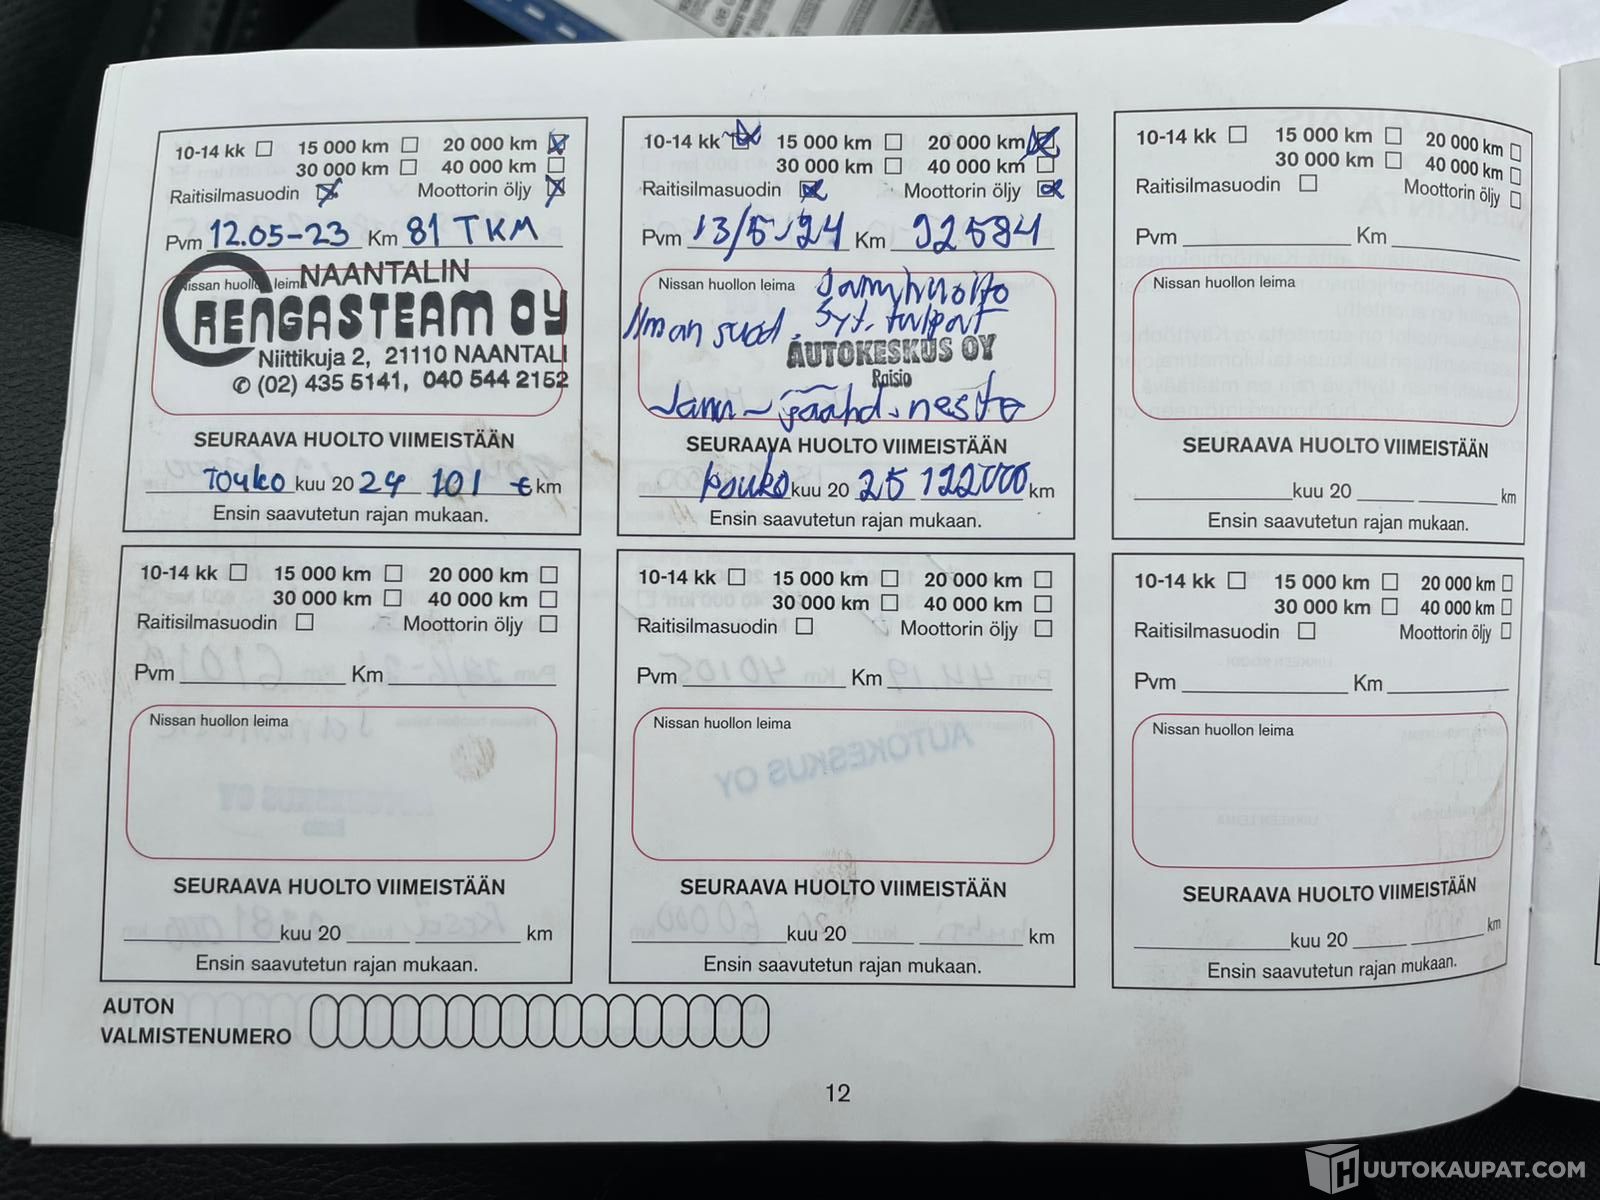 10-14 kk 15 000 km 20 000 km
30 000 km 40 000 km
Raitisilmasuodin Moottorin öljy
Pvm 12.05-23 Km 81 TKM
Nissan huollon leima
NAANTALIN
RENGASTEAM OY
Niittikuja 2, 21110 NAANTALI
(02) 435 5141, 040 544 2152
SEURAAVA HUOLTO VIIMEISTÄÄN
Touko kuu 20 24 101 t km
Ensin saavutetun rajan mukaan.
10-14 kk 15 000 km 20 000 km
30 000 km 40 000 km
Raitisilmasuodin Moottorin öljy
Pvm 13/5.24 Km 92584
Nissan huollon leima
Jarruhuolto
Ilman suod. Syt. tulpat
AUTOKESKUS OY
Raisio
Jarru- jäähd. neste
SEURAAVA HUOLTO VIIMEISTÄÄN
Touko kuu 20 25 122000 km
Ensin saavutetun rajan mukaan.
10-14 kk 15 000 km 20 000 km
30 000 km 40 000 km
Raitisilmasuodin Moottorin öljy
Pvm Km
Nissan huollon leima
SEURAAVA HUOLTO VIIMEISTÄÄN
kuu 20 km
Ensin saavutetun rajan mukaan.
10-14 kk 15 000 km 20 000 km
30 000 km 40 000 km
Raitisilmasuodin Moottorin öljy
Pvm Km
Nissan huollon leima
SEURAAVA HUOLTO VIIMEISTÄÄN
kuu 20 km
Ensin saavutetun rajan mukaan.
10-14 kk 15 000 km 20 000 km
30 000 km 40 000 km
Raitisilmasuodin Moottorin öljy
Pvm Km
Nissan huollon leima
SEURAAVA HUOLTO VIIMEISTÄÄN
kuu 20 km
Ensin saavutetun rajan mukaan.
10-14 kk 15 000 km 20 000 km
30 000 km 40 000 km
Raitisilmasuodin Moottorin öljy
Pvm Km
Nissan huollon leima
SEURAAVA HUOLTO VIIMEISTÄÄN
kuu 20 km
Ensin saavutetun rajan mukaan.
AUTON
VALMISTENUMERO
12
HUUTOKAUPAT.COM